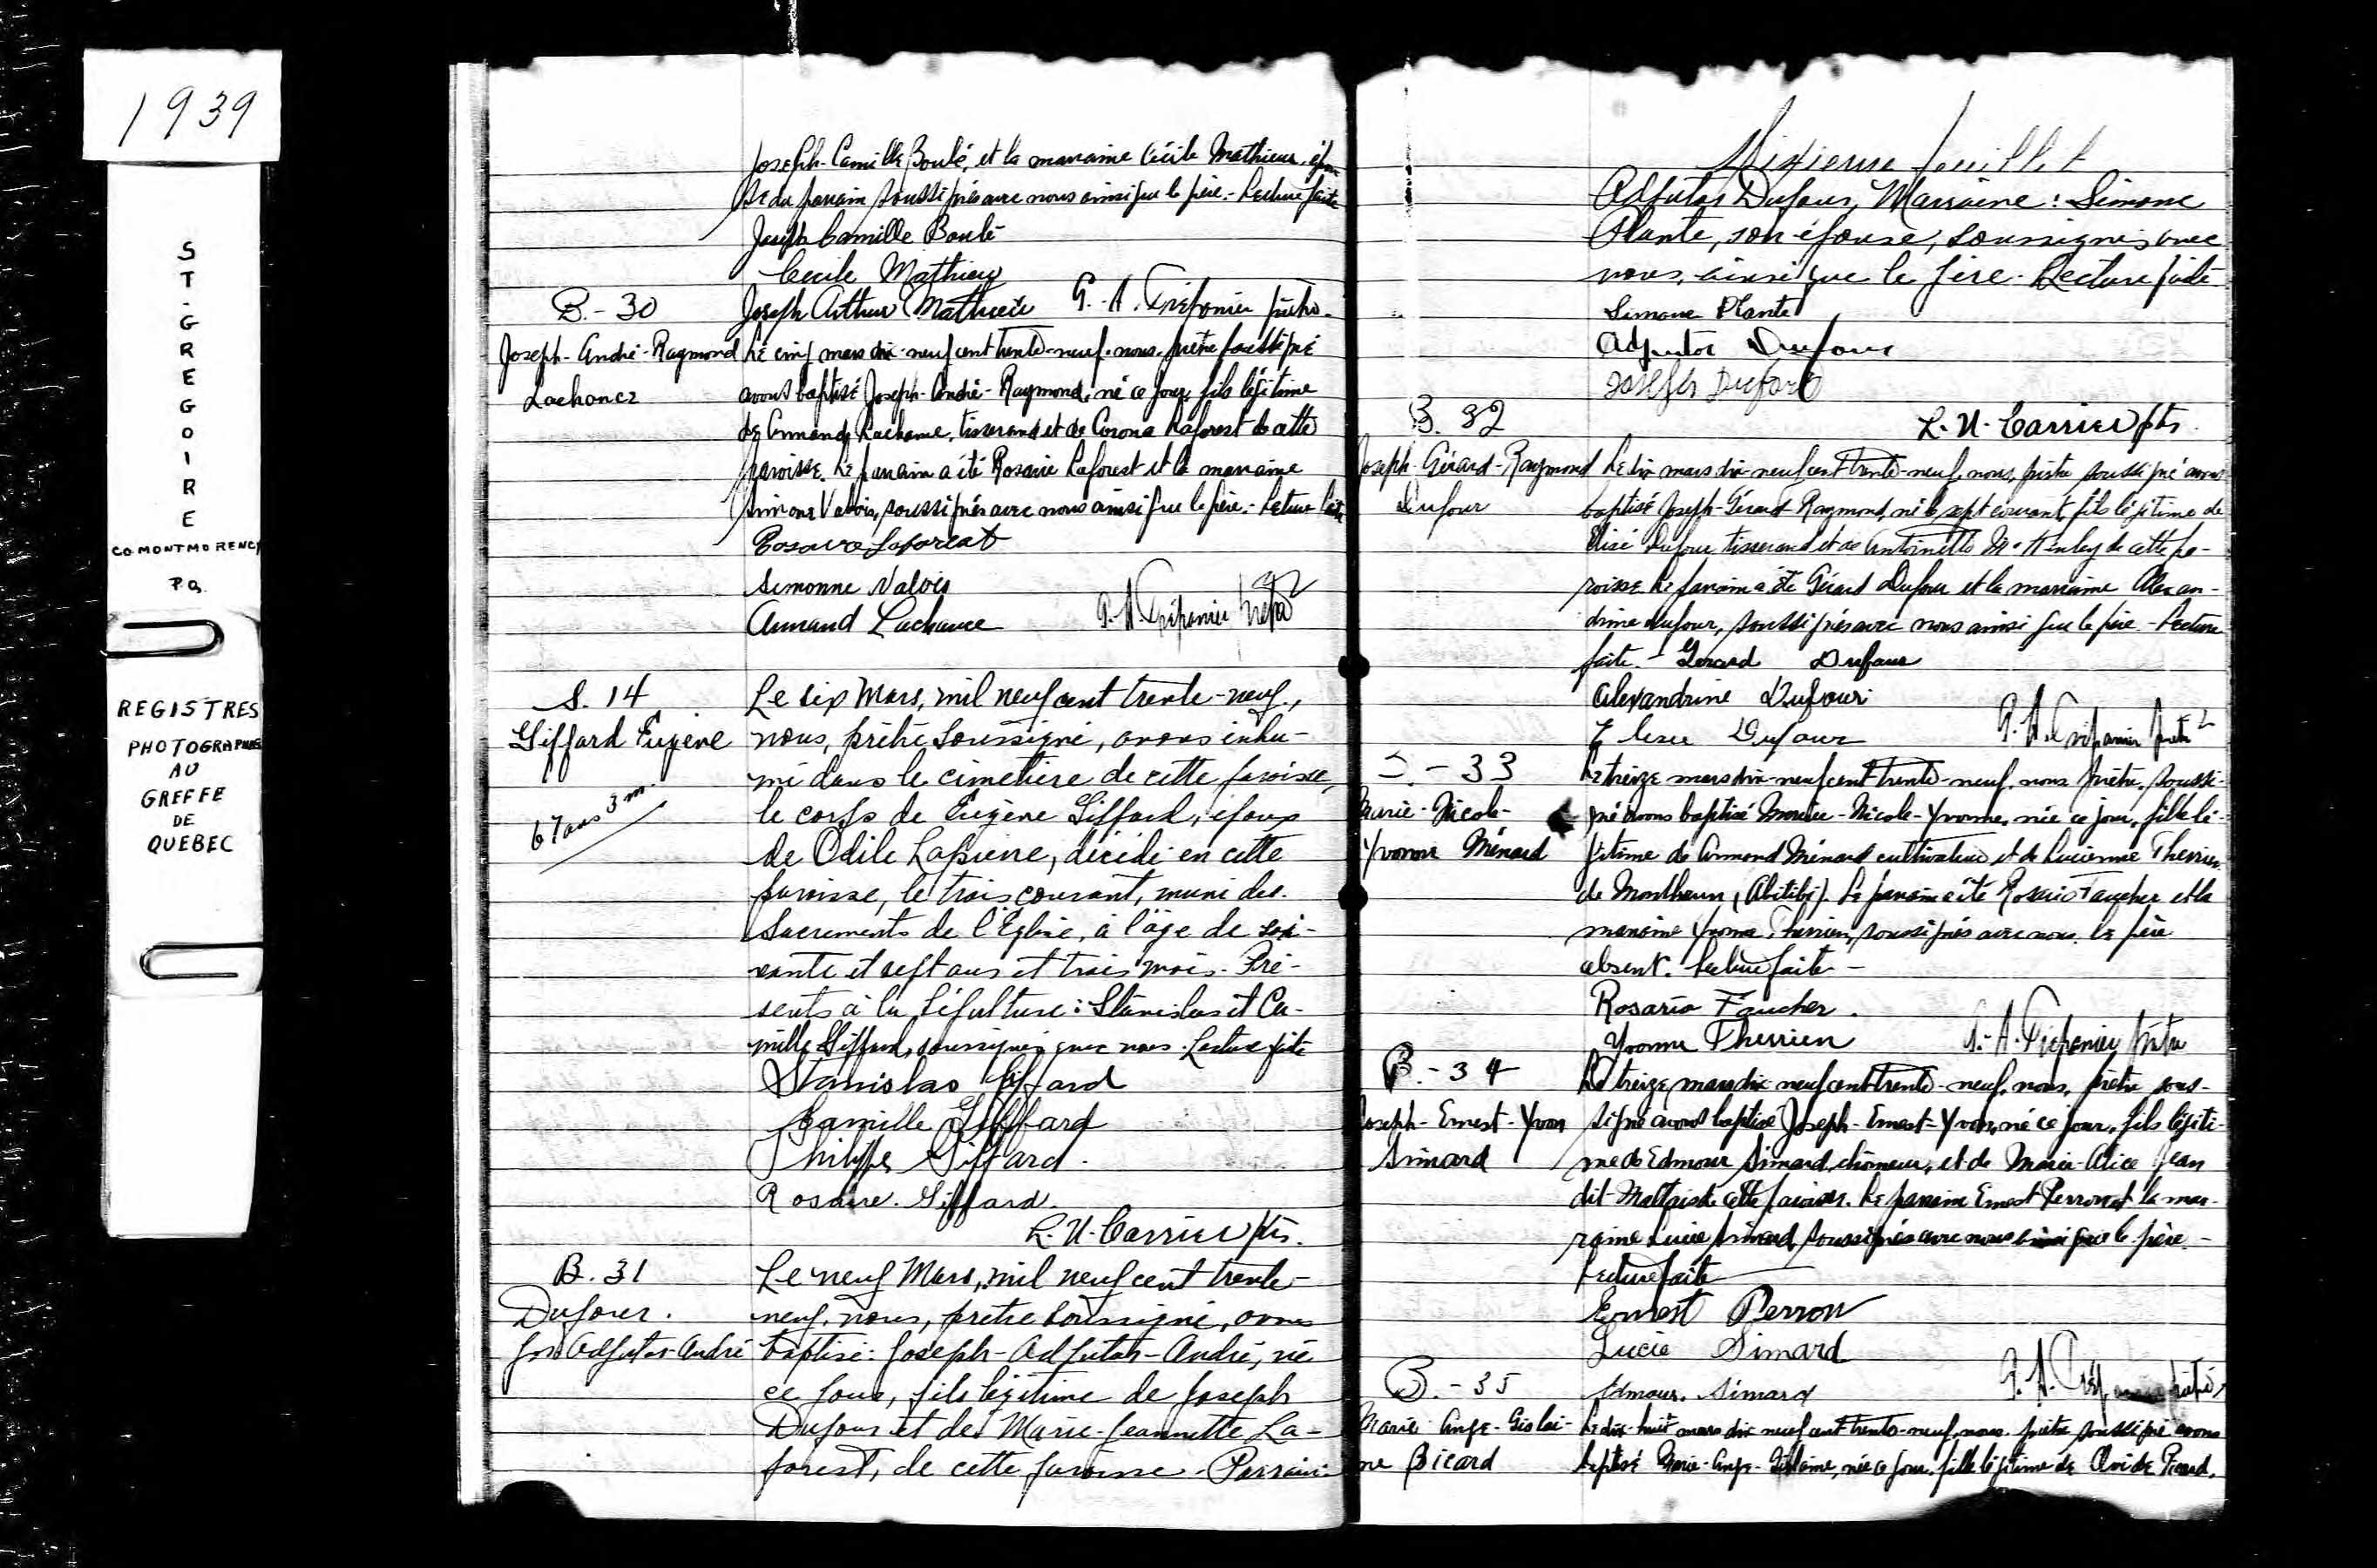 1939
ST-GREGOIRE
CO. MONTMORENCY
P.Q.
REGISTRES
PHOTOGRAPHIES
AU
GREFFE
DE
QUEBEC
Joseph-Camille Boulé, et la marraine Cécile Mathieu, épou-
se du parrain soussignés avec nous ainsi que le père.- Lecture faite
Joseph Camille Boulé
Cecile Mathieu
B.- 30
Joseph Arthur Mathieu G.-A. Trépanier prêtre.
Joseph-André-Raymond
Lachance
Le cinq mars dix-neuf cent trente-neuf, nous, prêtre soussigné
avons baptisé Joseph-André-Raymond, né ce jour, fils légitime
de Armand Lachance, tisserand et de Corona Laforest de cette
paroisse. Le parrain a été Rosaire Laforest et la marraine
Simone Valois, soussignés avec nous ainsi que le père.- Lecture faite
Rosaire Laforest
Simonne Valois
Armand Lachance G.A. Trépanier
S. 14
Giffard Eugène
67 ans 3 m.
Le six Mars, mil neuf cent trente-neuf,
nous, prêtre soussigné, avons inhu-
mé dans le cimetière de cette paroisse,
le corps de Eugène Giffard, époux
de Odile Lapierre, décédé en cette
paroisse, le trois courant, muni des
Sacrements de l'Eglise, à l'âge de soi-
xante et sept ans et trois mois. Pré-
sents à la sépulture: Stanislas et Ca-
mille Giffard, soussignés avec nous. Lecture faite
Stanislas Giffard
Camille Giffard
Philippe Giffard.
Rosaire. Giffard.
L.-N.-Carrier ptr.
B. 31
Dufour.
Jos Adjutor André
Le neuf Mars, mil neuf cent trente-
neuf, nous, prêtre soussigné, avons
baptisé: Joseph-Adjutor-André, né
ce jour, fils légitime de Joseph
Dufour et de Marie-Jeannette La-
forest, de cette paroisse. Parrain:
Dixième feuillet
Adjutor Dufour, Marraine: Simone
Plante, son épouse, soussignés avec
nous, ainsi que le père. Lecture faite
Simone Plante
Adjutor Dufour
Joseph Dufour
L.-N.-Carrier ptr.
B. 32
Joseph-Gérard-Raymond
Dufour
Le dix mars dix-neuf cent trente-neuf, nous, prêtre soussigné avons
baptisé Joseph-Gérard-Raymond, né le sept courant, fils légitime de
Elisé Dufour tisserand et de Antoinette de cette pa-
roisse. Le parrain a été Gérard Dufour et la marraine Alexan-
drine Dufour, soussignés avec nous ainsi que le père.- Lecture
faite.- Gerard Dufour
Alexandrine Dufour
Dufour G.A. Trépanier prêtre
- 33
Marie-Nicole-
Yvonne Ménard
Le treize mars dix-neuf cent trente-neuf, nous prêtre, soussi-
gné avons baptisé Marie-Nicole-Yvonne, née ce jour, fille lé-
gitime de Armand Ménard cultivateur et de Lucienne Therrien
de (Abitibi). Le parrain a été Rosario Faucher et la
marraine Yvonne Therrien, soussignés avec nous. le père
absent. Lecture faite-
Rosario Faucher.
Yvonne Therrien G.-A. Trépanier prêtre
B.- 34
Joseph-Ernest-Yvon
Simard
Le treize mars dix-neuf cent trente-neuf, nous, prêtre sous-
signé avons baptisé Joseph-Ernest-Yvon, né ce jour, fils légiti-
me de Edmour Simard, chômeur, et de Marie-Alice Jean
dit Maltais de cette paroisse. Le parrain Ernest Perron et la mar-
raine Lucie Simard, soussignés avec nous ainsi que le père.-
Lecture faite
Ernest Perron
Lucie Simard
B.- 35
Edmour. Simard G.A. Trépanier prêtre
Marie Ange-Gislai-
ne Picard
Le dix-huit mars dix-neuf cent trente-neuf, nous, prêtre soussigné avons
baptisé Marie-Ange-Gislaine, née ce jour, fille légitime de Ovide Picard,